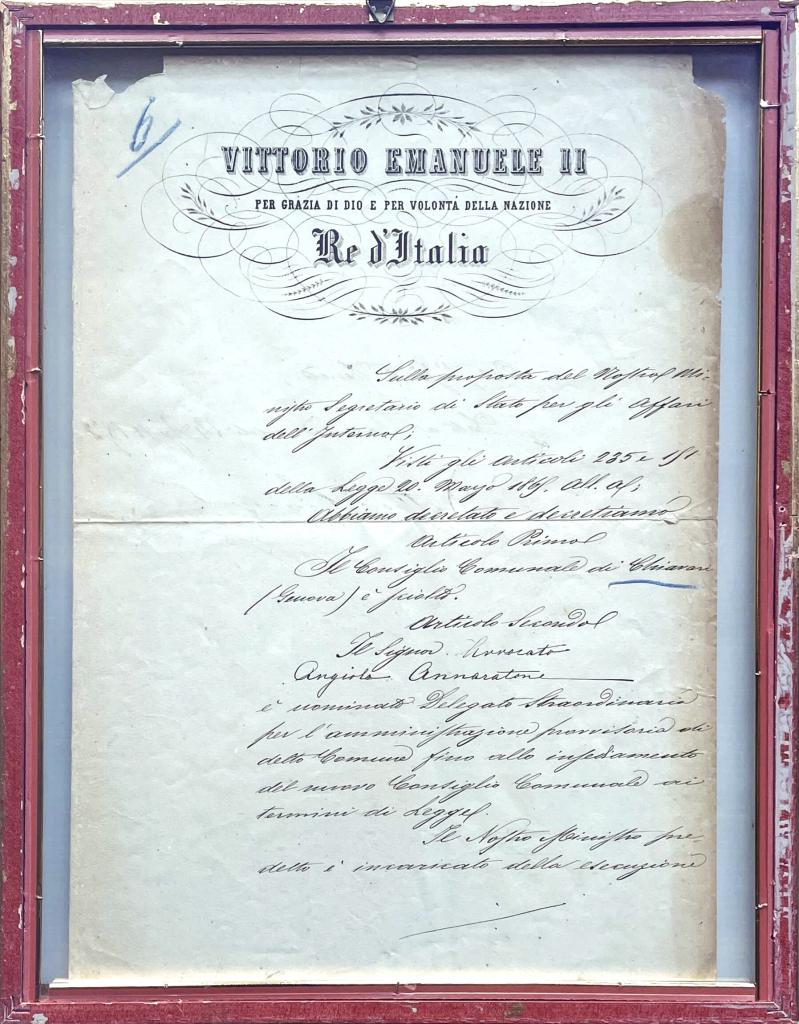 6
VITTORIO EMANUELE II
PER GRAZIA DI DIO E PER VOLONTÀ DELLA NAZIONE
Re d'Italia
Sulla proposta del Nostro Mi-
nistro Segretario di Stato per gli Affari
dell'Interno;
Visti gli articoli 235 e
della Legge 20. Marzo 1865. All. A;
Abbiamo decretato e decretiamo
Articolo Primo
Il Consiglio Comunale di Chiavari
(Genova) è sciolto.
Articolo Secondo
Il Signor Avvocato
Angiolo Annaratone
è nominato Delegato Straordinario
per l'amministrazione provvisoria di
detto Comune fino allo insediamento
del nuovo Consiglio Comunale ai
termini di Legge.
Il Nostro Ministro pre-
detto è incaricato della esecuzione